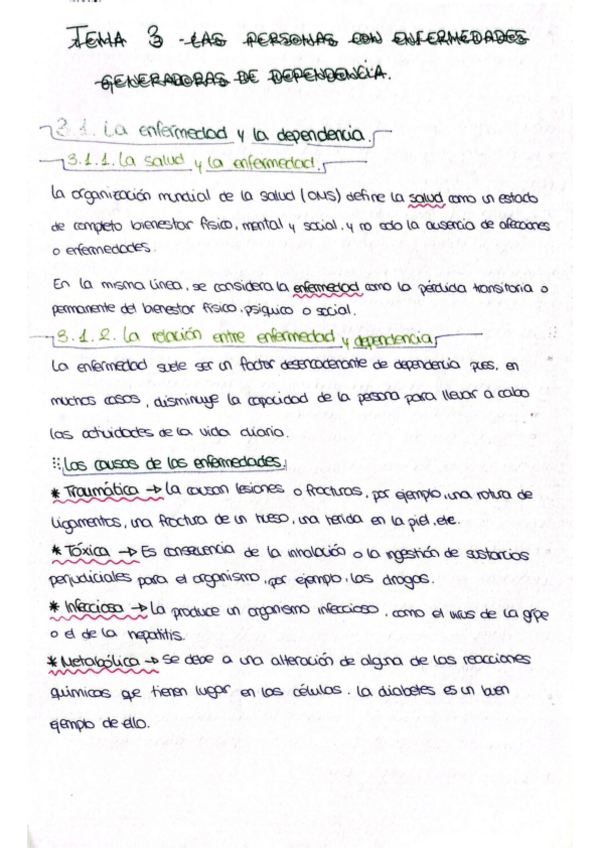 TEMA 3 - LAS PERSONAS CON ENFERMEDADES
GENERADORAS DE DEPENDENCIA.
3.1. La enfermedad y la dependencia.
3.1.1. La salud y la enfermedad.
La organización mundial de la salud (OMS) define la salud como un estado
de completo bienestar físico, mental y social, y no solo la ausencia de afecciones
o enfermedades.
En la misma línea, se considera la enfermedad como la pérdida transitoria o
permanente del bienestar físico, psíquico o social.
3.1.2. La relación entre enfermedad y dependencia
La enfermedad suele ser un factor desencadenante de dependencia pues, en
muchos casos, disminuye la capacidad de la persona para llevar a cabo
las actividades de la vida diaria.
Las causas de las enfermedades.
* Traumática → La causan lesiones o fracturas, por ejemplo, una rotura de
ligamentos, una fractura de un hueso, una herida en la piel, etc.
* Tóxica → Es consecuencia de la inhalación o la ingestión de sustancias
perjudiciales para el organismo, por ejemplo, las drogas.
* Infecciosa → La produce un organismo infeccioso, como el virus de la gripe
o el de la hepatitis.
* Metabólica → Se debe a una alteración de alguna de las reacciones
químicas que tienen lugar en las células. La diabetes es un buen
ejemplo de ello.